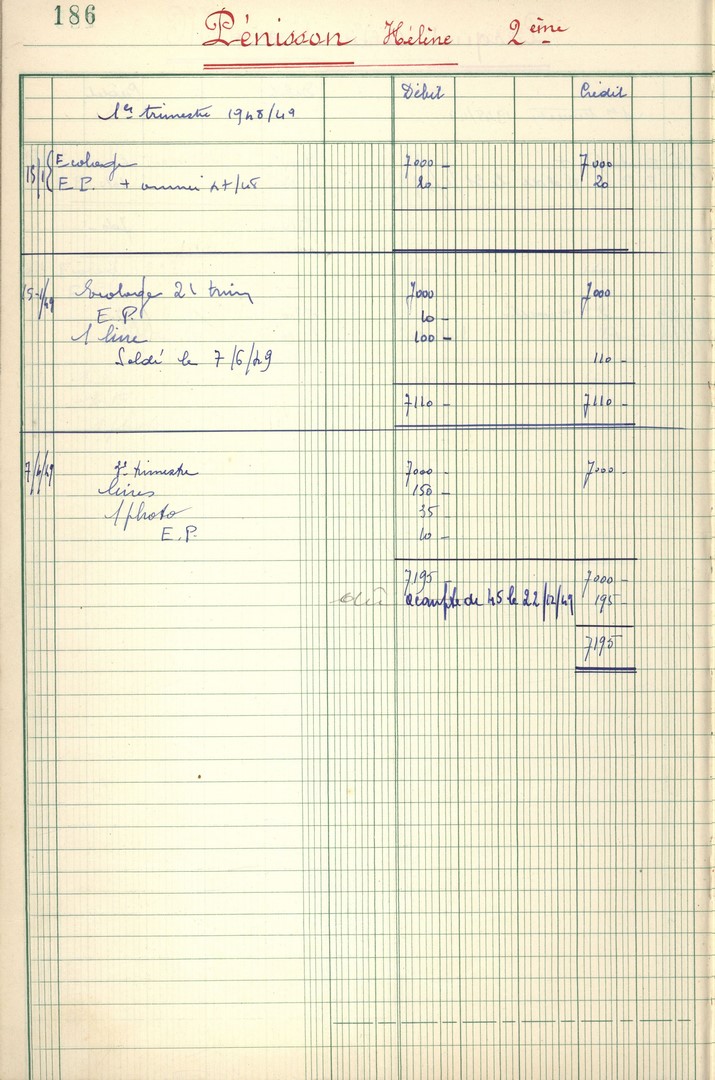 186
Pénisson Hélène 2ème
Début Crédit
1er trimestre 1948/49
Ecolage 7000 - 7000
E P. + année 47/48 20 - 20
15-1/49 Ecolage 2e trim 7000 7000
E.P. 10 -
1 livre 100 -
Soldé le 7/6/49 110 -
7110 - 7110 -
7/4/49 3e trimestre 7000 - 7000 -
livres 150 -
1 photo 35 -
E.P. 10 -
7195 7000 -
dû acompte de 45 le 22/12/49 195 -
7195